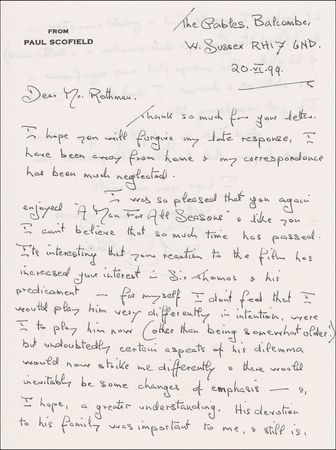 The Gables, Balcombe,
FROM
PAUL SCOFIELD
W. Sussex RH17 6ND.
20.VI.99.
Dear Mr. Rothman.
Thank so much for your letter.
I hope you will forgive my late response, I
have been away from home & my correspondence
has been much neglected.
I was so pleased that you again
enjoyed "A Man For All Seasons" & like you
I can't believe that so much time has passed.
It's interesting that your reaction to the film has
increased your interest in Sir Thomas & his
predicament – for myself I don't feel that I
would play him very differently in intention, were
I to play him now (other than being somewhat older)
but undoubtedly certain aspects of his dilemma
would now strike me differently & there would
inevitably be some changes of emphasis – &,
I hope, a greater understanding. His devotion
to his family was important to me, & still is,